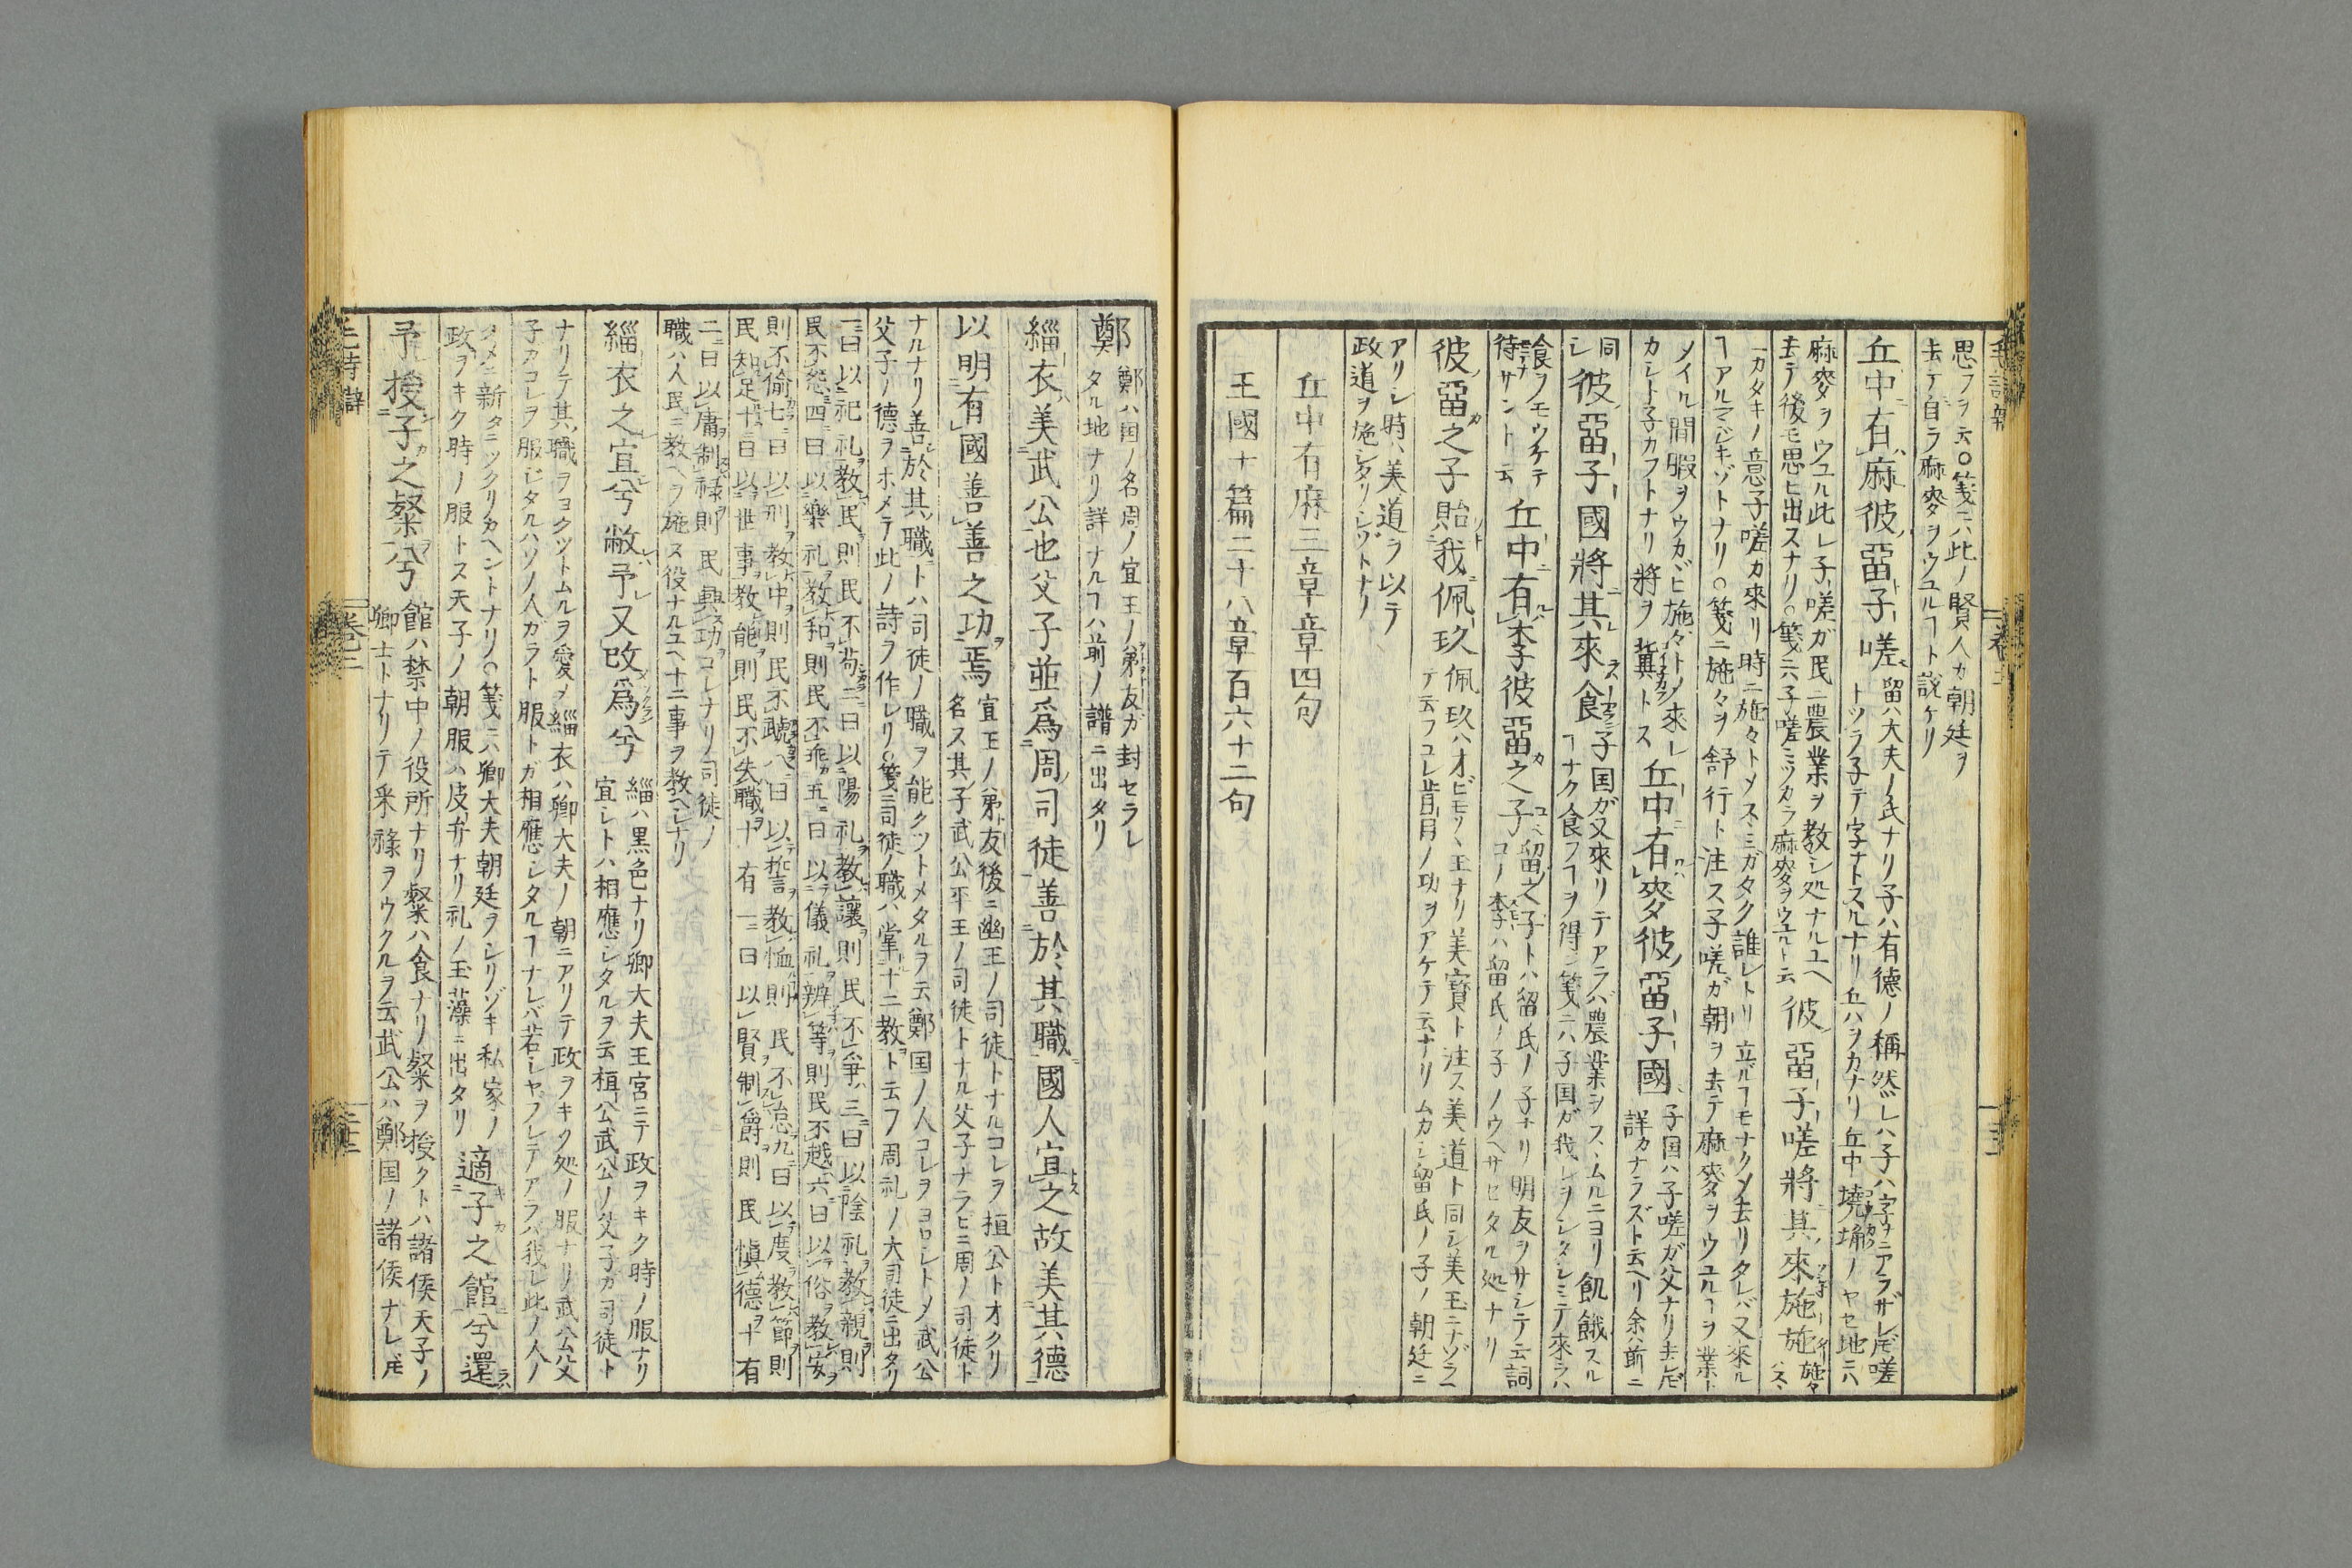 思フヲ云○箋ニハ此ノ賢人カ朝廷ヲ
去テ自ラ麻麥ヲウユルヿト説ケリ
丘中有麻彼留子嗟
留ハ大夫ノ氏ナリ子ハ有德ノ稱然レハ子ハ字ヲニアラザレ𪜈嗟
トツラ子テ字ナトスルナリ丘ハヲカナリ丘中墝埆ノヤセ地ニハ
麻麥ヲウユル此レ子嗟ガ民ニ農業ヲ教シ処ナルユヘ
去テ後モ思ヒ出スナリ○箋ニハ子嗟ミツカラ麻麥ヲウユルト云
彼留子嗟將其來施施
カタキノ意子嗟カ來リ時ニ施々トメスミガタク誰レトリ立ルヿモナクメ去リタレバ又來ル
ヿアルマジキゾトナリ○箋ニ施々ヲ舒行ト注ス子嗟ガ朝ヲ去テ麻麥ヲウユルヿヲ業ト
メイル間暇ヲウカヾヒ施々トメ來レ
カシト子カフトナリ將ヲ冀トス
丘中有麥彼留子國
子国ハ子嗟ガ父ナリ𪜈
詳カナラズト云ヘリ余ハ前ニ
同シ
彼留子國將其來食
子国ガ又來リテアラバ農業ヲスヽムルニヨリ飢餓スル
ヿナク食フヿヲ得ン箋ニハ子国ガ我レヲシタシミテ來ラハ
食ヲモウケテ
待サントト云
丘中有李彼留之子
留之子トハ留氏ノ子ナリ明友ヲサシテテ云詞
コノ李ハ留氏ノ子ノウヘサセタル処ナリ
彼留之子貽我佩玖
佩玖ハオビモノヽ玉ナリ美寶ト注ス美道ト同シ美玉ニナゾラヘ
テ云フコレ昔日ノ功ヲアケテ云ナリムカシ留氏ノ子ノ朝廷ニ
アリシ時ハ美道ヲ以テ
政道ヲ施シタリシゾトナリ
丘中有麻三章章四句
王國十篇二十八章百六十二句
鄭
鄭ハ国ノ名周ノ宣王ノ弟友ガ封セラレ
タル地ナリ詳ナルヿハ前ノ譜ニ出タリ
緇衣美武公也父子並爲周司徒善於其職國人宜之故美其德
以明有國善善之功焉
宣王ノ弟友後ニ幽王ノ司徒トナルコレヲ桓公トオクリ
名ス其子武公平王ノ司徒トナル父子ナラビニ周ノ司徒ト
ナルナリ善於其職トハ司徒ノ職ヲ能クツトメタルヲ云鄭国ノ人コレヲヨロシトメ武公
父子ノ德ヲホメテ此ノ詩ヲ作レリ○箋ニ司徒ノ職ハ掌十二教ト云フ周礼ノ大司徒ニ出タリ
一曰以祀礼教民則民不苟二曰以陽礼教讓則民不爭三曰以陰礼教親則
民不怨四曰以樂礼教和則民不乖五曰以儀礼辨等則民不越六曰以俗教安
則不偷七曰以刑教中則民不虣八曰以誓教恤則民不怠九曰以度教節則
民知足十曰以世事教能則民不失職十有一曰以賢制爵則民愼德十有
二曰以庸制祿則民興功コレナリ司徒ノ
職ハ人民ニ教ヘヲ施ス役ナルユヘ十二事ヲ教ヘシナリ
緇衣之宜兮敝予又改爲兮
緇ハ黒色ナリ卿大夫王宮ニテ政ヲキク時ノ服ナリ
宜シトハ相應シタルヲ云桓公武公ノ父子ガ司徒ト
ナリテ其職ヲヨクツトムルヲ愛メ緇衣ハ卿大夫ノ朝ニアリテ政ヲキク処ノ服ナリ武公父
子カコレヲ服ビタルハソノ人ガラト服トガ相應シタルヿナレバ若シヤフレテアラバ我レ此ノ人ノ
タメニ新タニツクリカヘントナリ○箋ニハ卿大夫朝廷ヲシリゾキ私家ノ
政ヲキク時ノ服トス天子ノ朝服ハ皮弁ナリ礼ノ玉藻ニ出タリ
適子之館兮還
予授子之粲兮
館ハ禁中ノ役所ナリ粲ハ食ナリ粲ヲ授クトハ諸侯天子ノ
卿士トナリテ采祿ヲウクルヲ云武公ハ鄭国ノ諸侯ナレ𪜈